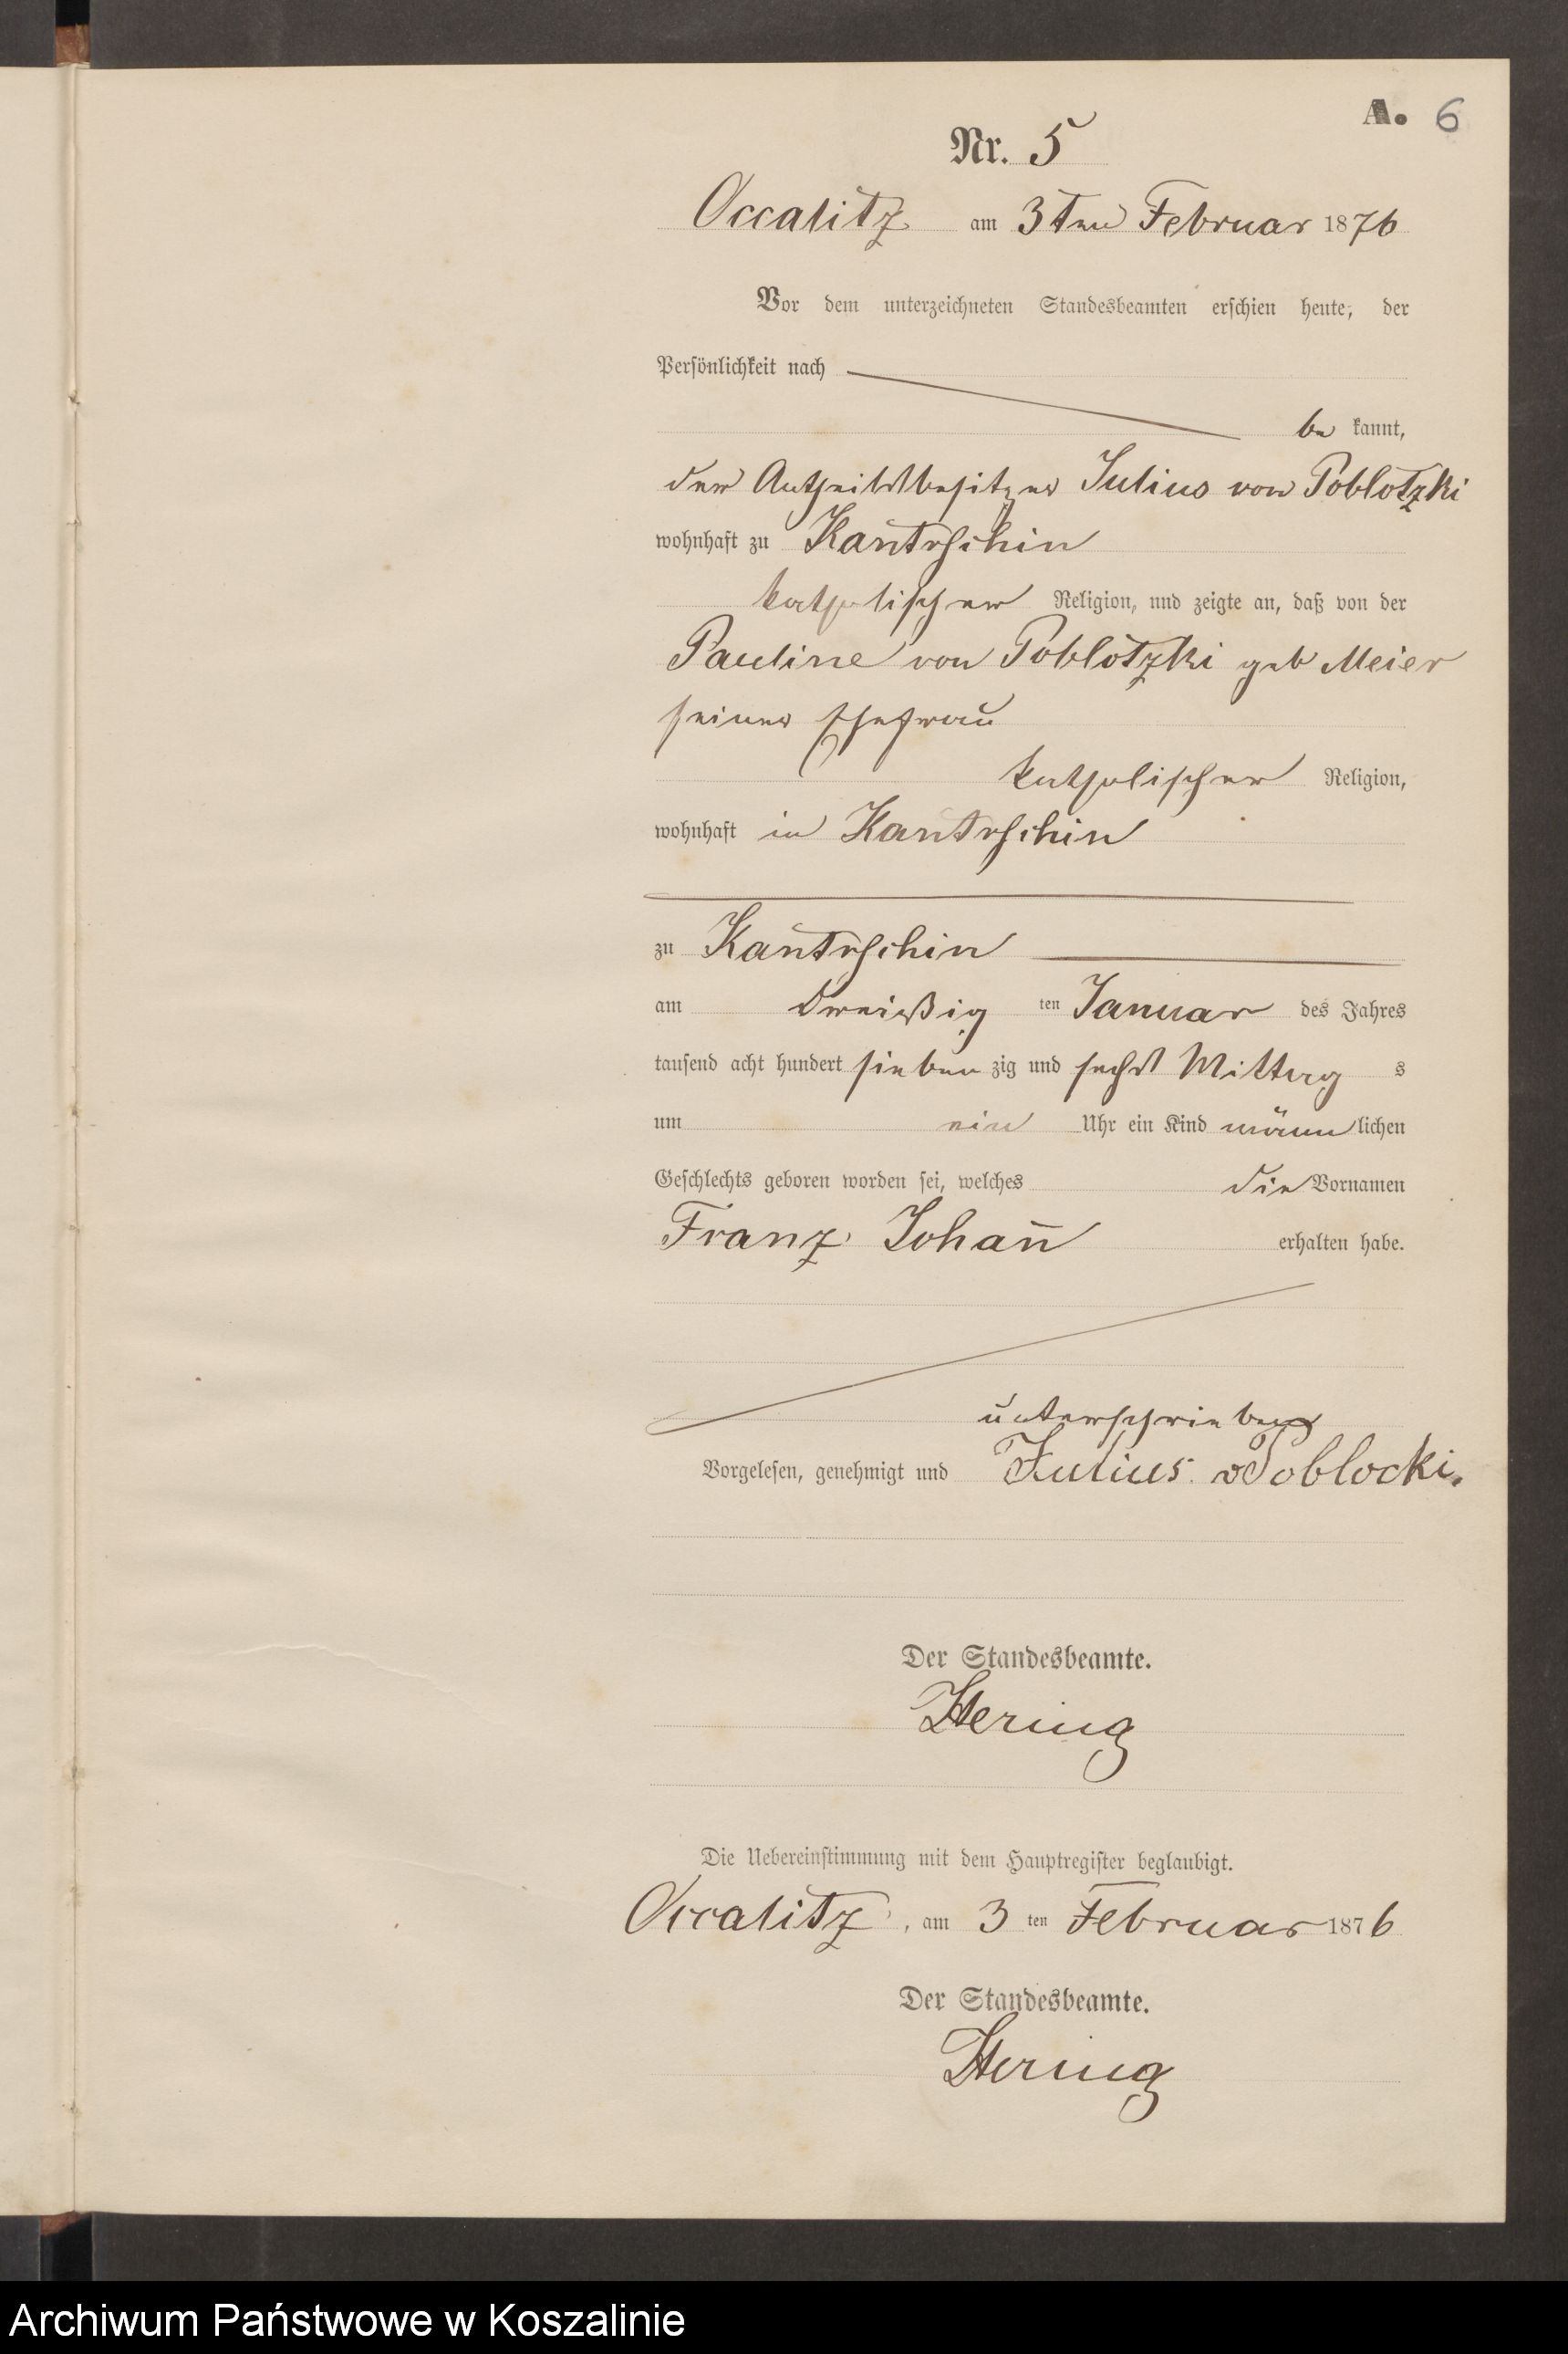 A. 6
Nr. 5
Occalitz am 3ten Februar 1876
Vor dem unterzeichneten Standesbeamten erschien heute, der
Persönlichkeit nach
be kannt,
der Antheilsbesitzer Julius von Poblotzki
wohnhaft zu Kantrschin
katholischer Religion, und zeigte an, daß von der
Pauline von Poblotzki geb Meier
seiner Ehefrau
katholischer Religion,
wohnhaft in Kantrschin
zu Kantrschin
am dreißig ten Januar des Jahres
tausend acht hundert sieben zig und sechs Mittag s
um ein Uhr ein Kind männ lichen
Geschlechts geboren worden sei, welches die Vornamen
Franz Johan̅ erhalten habe.
unterschrieben
Vorgelesen, genehmigt und Julius v Poblocki.
Der Standesbeamte.
Hering
Die Uebereinstimmung mit dem Hauptregister beglaubigt.
Occalitz, am 3 ten Februar 1876
Der Standesbeamte.
Hering
Archiwum Państwowe w Koszalinie